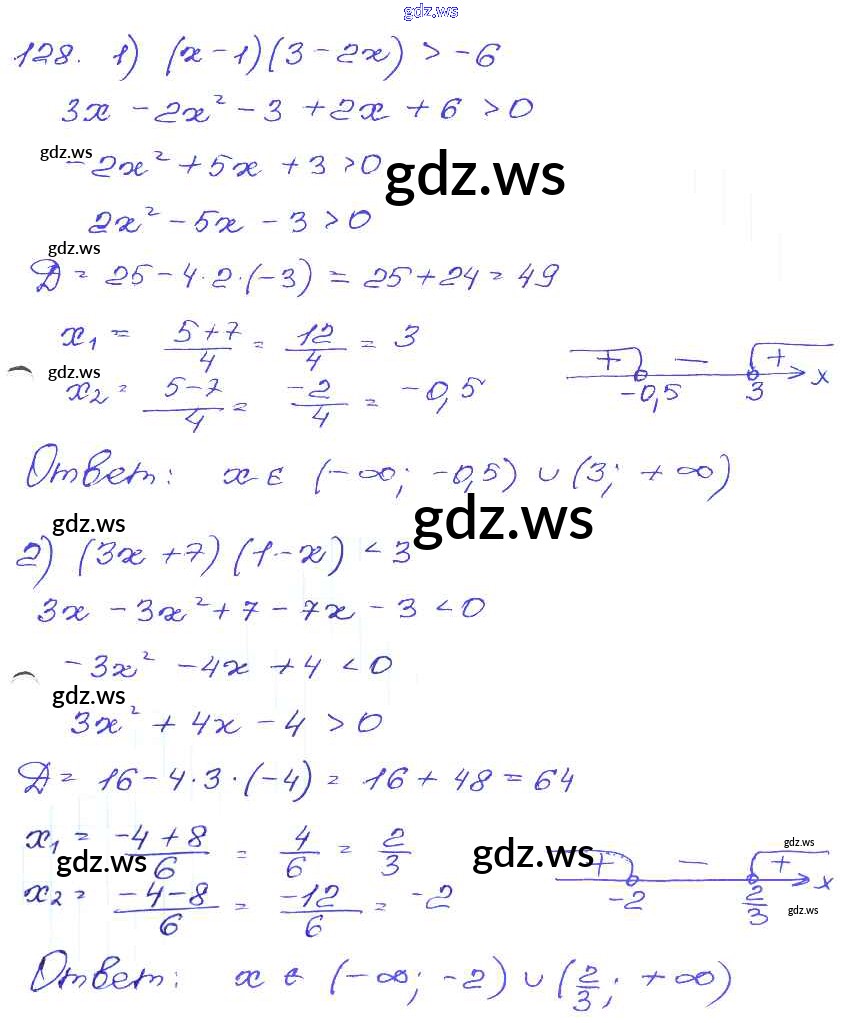 gdz.ws
128. 1) (x - 1)(3 - 2x) > -6
3x - 2x² - 3 + 2x + 6 > 0
gdz.ws
-2x² + 5x + 3 > 0
gdz.ws
2x² - 5x - 3 > 0
gdz.ws
D = 25 - 4·2·(-3) = 25 + 24 = 49
x₁ = (5+7)/4 = 12/4 = 3
+ - +
gdz.ws
x₂ = (5-7)/4 = -2/4 = -0,5
-0,5 3 x
Ответ: x ∈ (-∞; -0,5) ∪ (3; +∞)
gdz.ws gdz.ws
2) (3x + 7)(1 - x) < 3
3x - 3x² + 7 - 7x - 3 < 0
-3x² - 4x + 4 < 0
gdz.ws
3x² + 4x - 4 > 0
D = 16 - 4·3·(-4) = 16 + 48 = 64
x₁ = (-4+8)/6 = 4/6 = 2/3
gdz.ws gdz.ws gdz.ws
+ - +
x₂ = (-4-8)/6 = -12/6 = -2
-2 2/3 x
gdz.ws
Ответ: x ∈ (-∞; -2) ∪ (2/3; +∞)